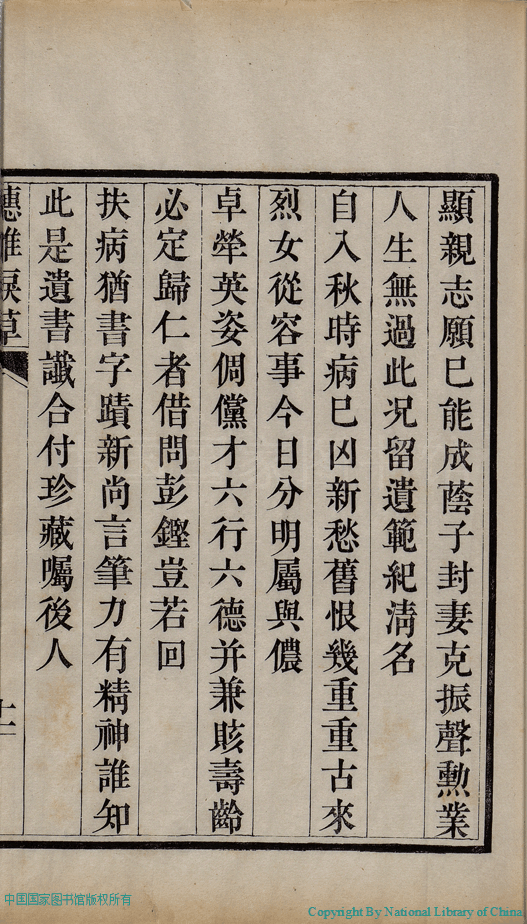 顯親志願巳能成蔭子封妻克振聲勲業
人生無過此况留遺範紀淸名
自入秋時病巳凶新愁舊恨幾重重古來
烈女從容事今日分明屬與儂
卓犖英姿倜儻才六行六德并兼賅壽齡
必定歸仁者借問彭鏗豈若回
扶病猶書字蹟新尚言筆力有精神誰知
此是遺書讖合付珍藏囑後人
中国国家图书馆版权所有
Copyright By National Library of China